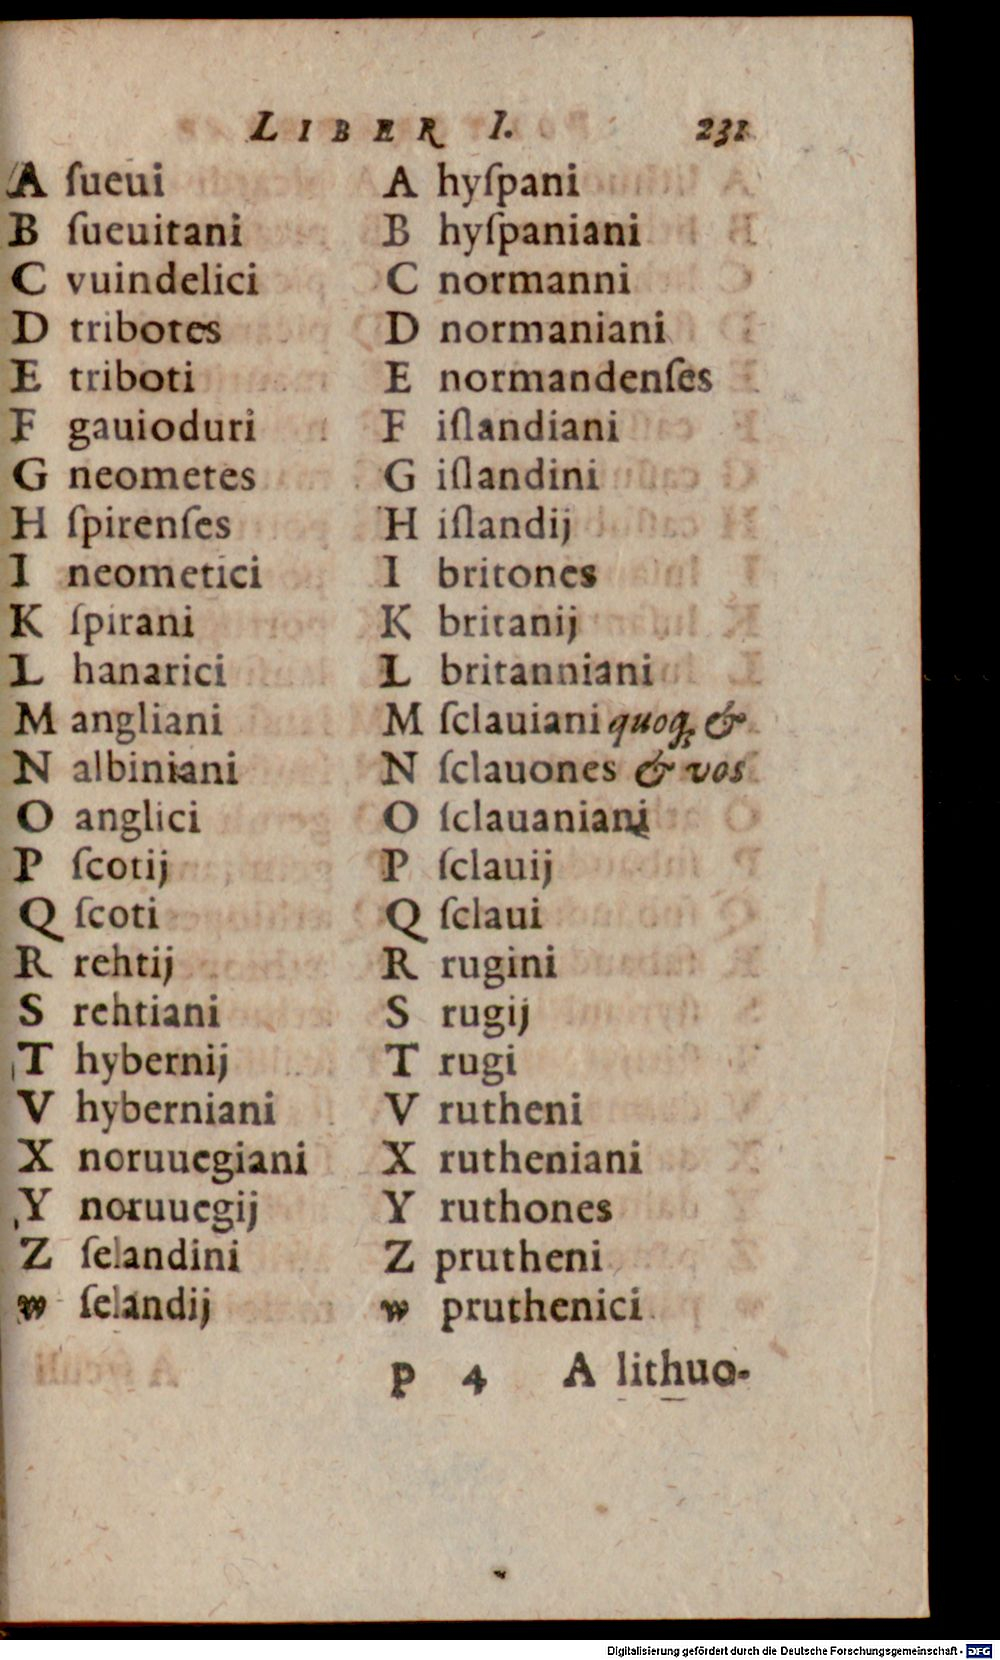 LIBER I. 231
A ſueui
B ſueuitani
C vuindelici
D tribotes
E triboti
F gauioduri
G neometes
H ſpirenſes
I neometici
K ſpirani
L hanarici
M angliani
N albiniani
O anglici
P ſcotij
Q ſcoti
R rehtij
S rehtiani
T hybernij
V hyberniani
X noruuegiani
Y noruuegij
Z ſelandini
w ſelandij
A hyſpani
B hyſpaniani
C normanni
D normaniani
E normandenſes
F iſlandiani
G iſlandini
H iſlandij
I britones
K britanij
L britanniani
M ſclauiani quoqꝫ &
N ſclauones & vos
O ſclauaniani
P ſclauij
Q ſclaui
R rugini
S rugij
T rugi
V rutheni
X rutheniani
Y ruthones
Z prutheni
w pruthenici
P 4 A lithuo-
Digitalisierung gefördert durch die Deutsche Forschungsgemeinschaft - DFG